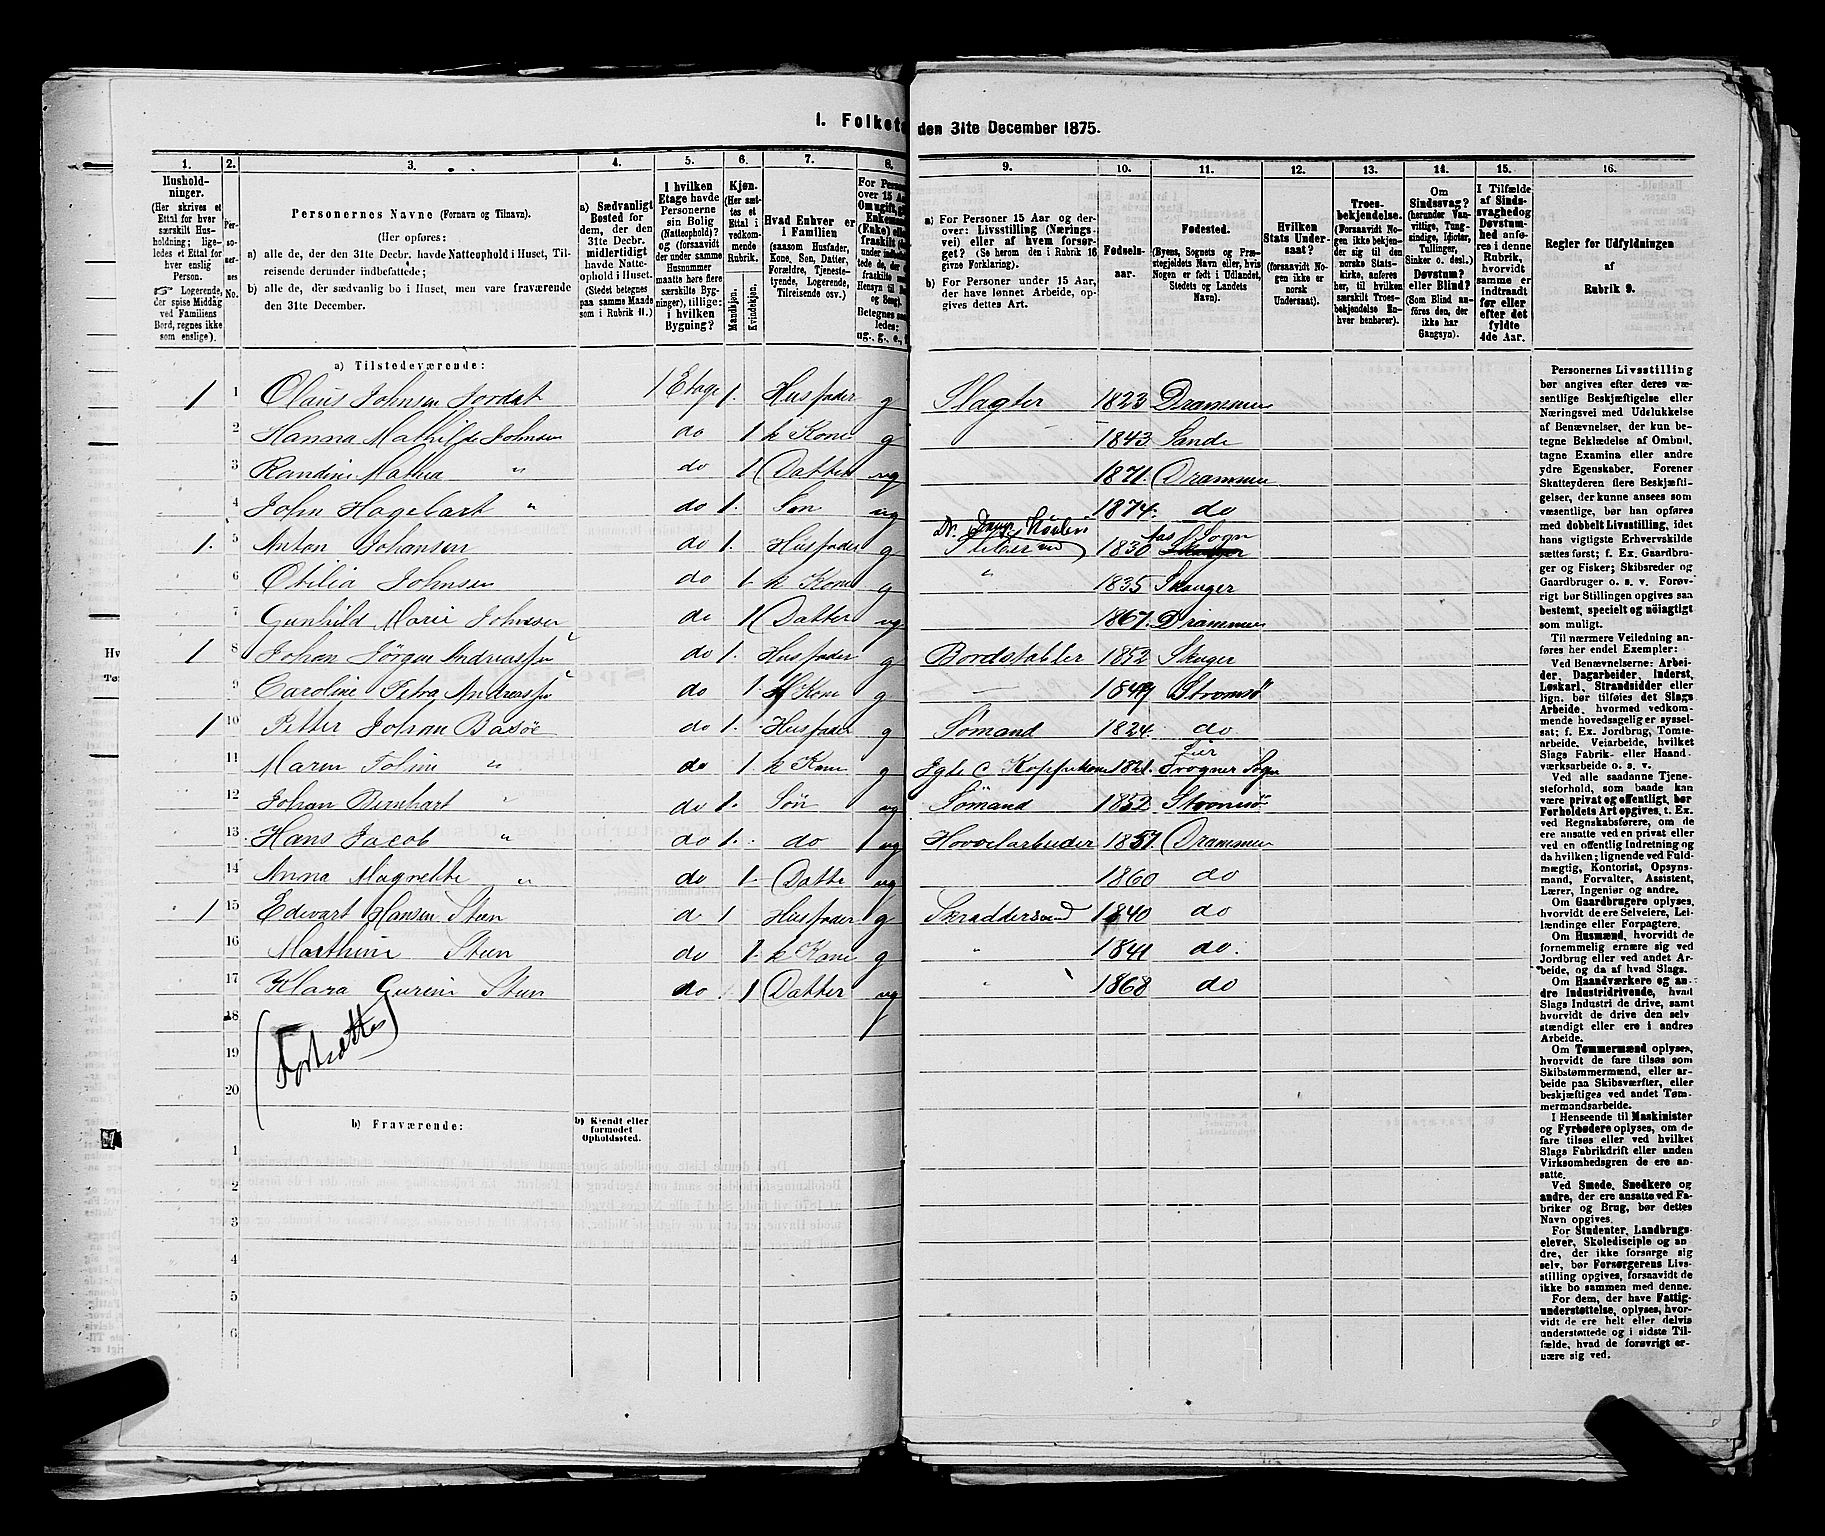 I. Folketæ
den 31te December 1875.
1.
2.
3.
4.
5.
6.
7.
8.
9.
10.
11.
12.
13.
14.
15.
16.
Hushold-
ninger.
(Her skrives et
Ettal for hver
særskilt Hus-
holdning; lige-
ledes et Ettal for
hver enslig
Person.
Logerende,
der spise Middag
ved Familiens
Bord, regnes ikke
som enslige).
Per-
so-
ner-
nes
No.
Personernes Navne (Fornavn og Tilnavn).
(Her opføres:
a) alle de, der den 31te Decbr. havde Natteophold i Huset, Til-
reisende derunder indbefattede;
b) alle de, der sædvanlig bo i Huset, men vare fraværende
den 31te December.
a) Sædvanligt
Bosted for
dem, der den
31te Decbr.
midlertidigt
havde Natte-
ophold i Huset.
(Stedet betegnes
paa samme Maade
som i Rubrik 11.)
I hvilken
Etage havde
Personerne
sin Bolig
(Natteophold)?
og (forsaavidt
der under samme
Husnummer
maatte høre flere
særskilte Byg-
ninger), tillige:
i hvilken
Bygning?
Kjøn.
(Her sæt-
tes et
Ettal i
vedkom-
mende
Rubrik.
Mandkjøn.
Kvindekjøn.
Hvad Enhver er
i Familien
(saasom Husfader,
Kone, Søn, Datter,
Forældre, Tjeneste-
tyende, Logerende,
Tilreisende osv.)
For Person
over 15 Aar
Betegnes saa
ledes:
ug., g., e., f.
a) For Personer 15 Aar og der-
over: Livsstilling (Nærings-
vei) eller af hvem forsør-
get? (Se herom den i Rubrik 16
givne Forklaring).
b) For Personer under 15 Aar,
der have lønnet Arbeide, op-
gives dettes Art.
Fødsels-
aar.
Fødested.
(Byens, Sognets og Præ-
stegjeldets Navn eller, hvis
Nogen er født i Udlandet,
Stedets og Landets
Navn).
Hvilken
Stats Under-
saat?
(forsaavidt No-
gen ikke er
norsk
Undersaat).
Troes-
bekjendelse.
(Forsaavidt No-
gen ikke bekjen-
der sig til den
norske Stats-
kirke, anføres
her, til hvilken
særskilt Troes-
bekjendelse En-
hver henhører).
Om
Sindssvag?
(herunder Van-
vittige, Tung-
sindige, Idioter,
Tullinger,
Sinker o. desl.)
Døvstum?
eller Blind?
(Som Blind an-
føres den, der
ikke har
Gangsyn).
I Tilfælde
af Sinds-
svaghed og
Døvstum-
hed anfø-
res i denne
Rubrik,
hvorvidt
samme er
indtraadt
før eller
efter det
fyldte
4de Aar.
Regler for Udfyldningen
af
Rubrik 9.
a) Tilstedeværende:
1 1 Olaus Johnsen Jordat 1 Etage 1. Husfader g Slagter 1823 Drammen
2 Hanna Mathilde Johnsen do 1 k Kone g 1843 Sande
3 Randine Mathea " do 1 Datter ug 1871. Drammen
4 John Hagebart " do 1. Søn ug 1874. do
1. 5 Anton Johansen do 1. Husfader g 1830 Sogn
6 Otilia Johnsen do 1 k Kone g " 1835 Skauger
7 Gunhild Marie Johnsen do 1 Datter ug 1867. Drammen
1 8 Johan Jörgen Andreassen do 1. Husfader g Bordstabler 1852 Skauger
9 Caroline Petra Andreassen do 1 Kone g 1849 Stromsö
1 10 Petter Johan Basöe do 1. Husfader g Sömand 1824. do
Lier
11 Maren Foline " do 1. k Kone g Igle & Koppekone 1821. Frogner Sogn
12 Johan Bernhart " do 1. Sön ug Sömand 1852 Stromsö
13 Hans Jacob " do 1. do ug Hovvelarbeider 1857. Drammen
14 Anna Magrethe " do 1 Datte ug 1860 do
1 15 Edevart Hansen Steen d 1 Husfader g Skraddersvend 1840 do
16 Marthine Steen do 1. k Kone g " 1841 do.
17 Klara Gurine Steen do 1 Datter ug " 1868 do
18
19
20
(Fortsættes)
b) Fraværende:
b) Kjendt eller
formodet
Opholdssted.
1
2
3
4
5
6
Personernes Livsstilling
bør angives efter deres væ-
sentlige Beskjæftigelse eller
Næringsvei med Udelukkelse
af Benævnelser, der kun be-
tegne Beklædelse af Ombud,
tagne Examina eller andre
ydre Egenskaber. Forener
Skatteyderen flere Beskjæfti-
gelser, der kunne ansees som
væsentlige, bør han opføres
med dobbelt Livsstilling, idet
hans vigtigste Erhvervskilde
sættes først; f. Ex. Gaardbru-
ger og Fisker; Skibsreder og
Gaardbruger o. s. v. Forøv-
rigt bør Stillingen opgives saa
bestemt, specielt og nöiagtigt
som muligt.
Til nærmere Veiledning an-
føres her endel Exempler:
Ved Benævnelserne: Arbei-
der, Dagarbeider, Inderst,
Løskarl, Strandsidder eller
lign. bør tilføies det Slags
Arbeide, hvormed vedkom-
mende hovedsagelig er syssel-
sat; f. Ex. Jordbrug, Tomte-
arbeide, Veiarbeide, hvilket
Slags Fabrik- eller Haand-
værksarbeide o. s. v.
Ved alle saadanne Tjene-
steforhold, som baade kan
være privat og offentligt, bør
Forholdets Art opgives, t. Ex.
ved Regnskabsførere, om de
ere ansatte ved en privat eller
ved en offentlig Indretning og
da hvilken; lignende ved Fuld-
mægtig, Kontorist, Opsyns-
mand, Forvalter, Assistent,
Lærer, Ingeniør og andre.
Om Gaardbrugere oplyses,
hvorvidt de ere Selveiere, Lei-
lændinge eller Forpagtere.
Om Husmænd, hvorvidt de
fornemmelig ernære sig ved
Jordbrug eller ved andet Ar-
beide, og da af hvad Slags.
Om Haandværkere og an-
dre Industridrivende, hvad
Slags Industri de drive, samt
hvorvidt de drive den selv
stændigt eller ere i andres
Arbeide.
Om Tømmermænd oplyses,
hvorvidt de fare tilsøs som
Skibstømmermænd, eller ar-
beide paa Skibsværfter, eller
beskjæftiges ved andet Tøm-
mermandsarbeide.
I Henseende til Maskinister
og Fyrbødere oplyses, om de
fare tilsøs eller ved hvilket
Slags Fabrikdrift eller anden
Virksomhedsgren de ere an-
satte.
Ved Smede, Snedkere og
andre, der ere ansatte ved Fa-
briker og Brug, bør dettes
Navn opgives.
For Studenter, Landbrugs-
elever, Skoledisciple og an-
dre, der ikke forsørge sig
selv, bør Forsørgerens Livs-
stilling opgives, forsaavidt de
ikke bo sammen med denne.
For dem, der have Fattig-
understøttelse, oplyses, hvor-
vidt de ere helt eller delvis
understøttede og i sidste Til-
fælde, hvad de forøvrigt er-
nære sig ved.